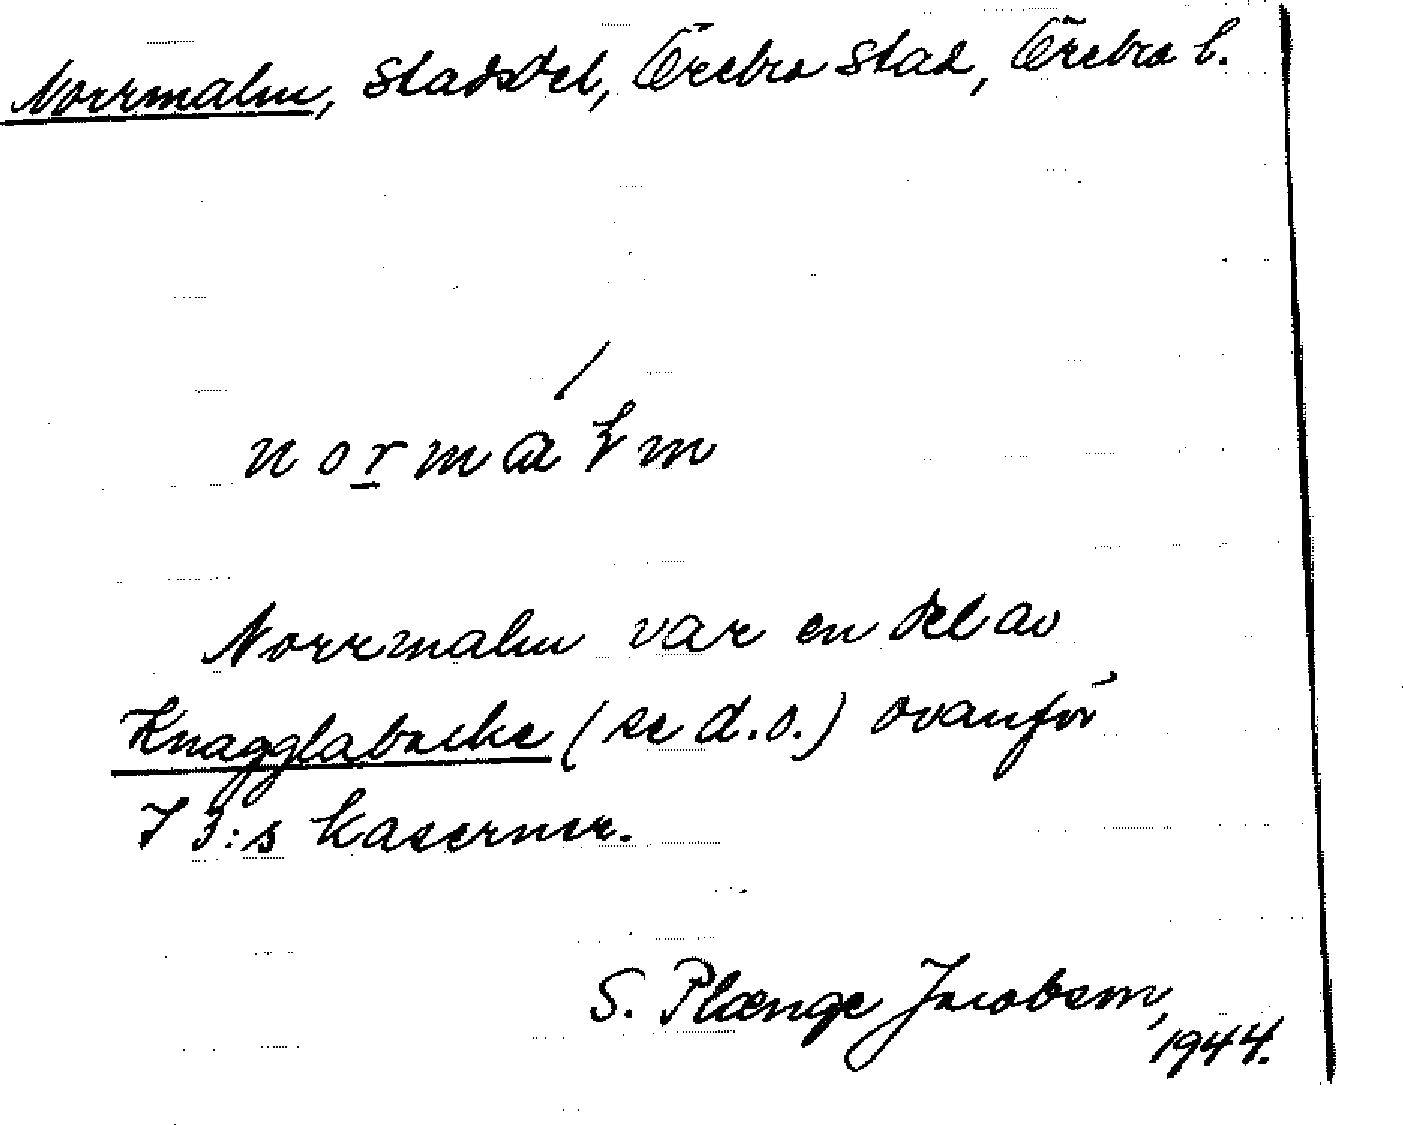 Norrmalm, Stadsdel, Örebro stad, Örebro l.
Norrmalm var en del av
Knagglabacke (se d.o.) ovanför
I 3:s kaserner.
S. Plænge Jacobson,
1944.